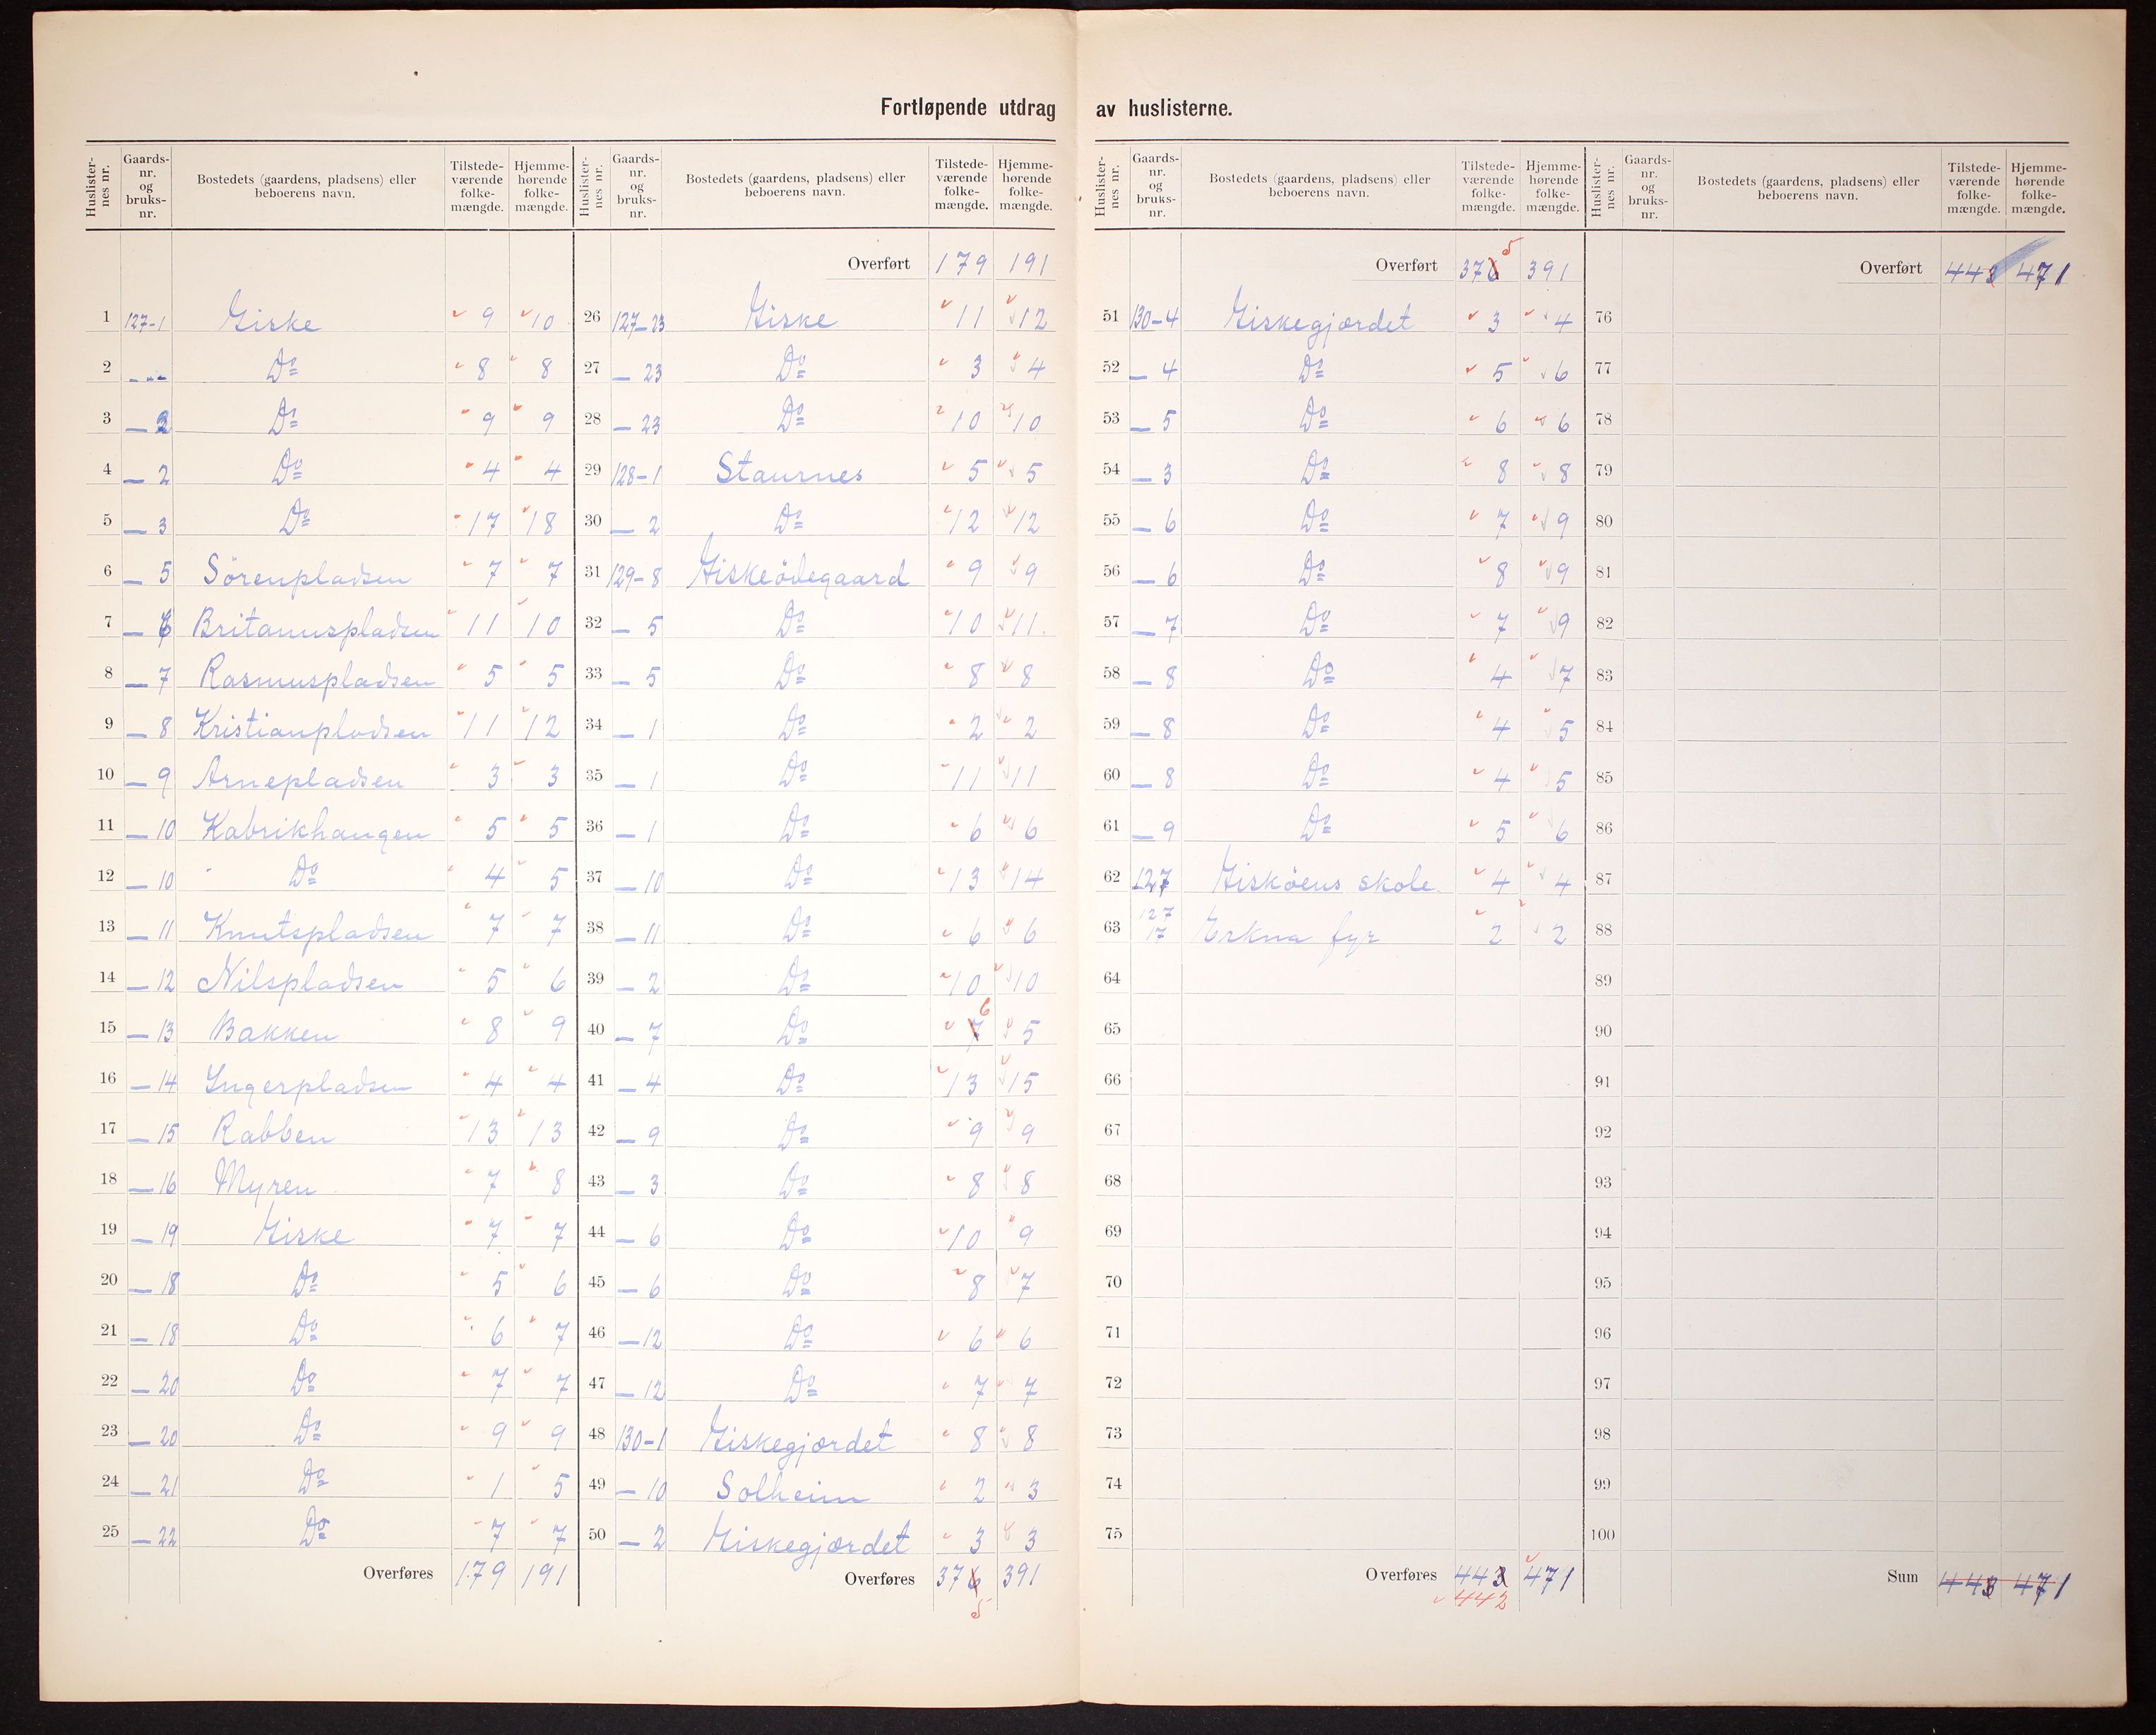 Fortløpende utdrag av huslisterne.
Huslister-nes nr. Gaards-nr. og bruks-nr. Bostedets (gaardens, pladsens) eller beboerens navn. Tilstede-værende folke-mængde. Hjemme-hørende folke-mængde.
1 127-1 Giske 9 10
2 — „- Do 8 8
3 — 2 Do 9 9
4 — 2 Do 4 4
5 — 3 Do 17 18
6 — 5 Sörenpladsen 7 7
7 — 6 Britanuspladsen 11 10
8 — 7 Rasmuspladsen 5 5
9 — 8 Kristianpladsen 11 12
10 — 9 Arnepladsen 3 3
11 — 10 Kabrikhaugen 5 5
12 — 10 Do 4 5
13 — 11 Knutspladsen 7 7
14 — 12 Nilspladsen 5 6
15 — 13 Bakken 8 9
16 — 14 Ingerpladsen 4 4
17 — 15 Rabben 13 13
18 — 16 Myren 7 8
19 — 19 Giske 7 7
20 — 18 Do 5 6
21 — 18 Do 6 7
22 — 20 Do 7 7
23 — 20 Do 9 9
24 — 21 Do 1 5
25 — 22 Do 7 7
Overføres 179 191
Huslister-nes nr. Gaards-nr. og bruks-nr. Bostedets (gaardens, pladsens) eller beboerens navn. Tilstede-værende folke-mængde. Hjemme-hørende folke-mængde.
Overført 179 191
26 127-23 Giske 11 12
27 — 23 Do 3 4
28 — 23 Do 10 10
29 128-1 Staurnes 5 5
30 — 2 Do 12 12
31 129-8 Giskeödegaard 9 9
32 — 5 Do 10 11
33 — 5 Do 8 8
34 — 1 Do 2 2
35 — 1 Do 11 11
36 — 1 Do 6 6
37 — 10 Do 13 14
38 — 11 Do 6 6
39 — 2 Do 10 10
40 — 7 Do 7 6 5
41 — 4 Do 13 15
42 — 9 Do 9 9
43 — 3 Do 8 8
44 — 6 Do 10 9
45 — 6 Do 8 7
46 — 12 Do 6 6
47 — 12 Do 7 7
48 130-1 Giskegjærdet 8 8
49 — 10 Solheim 2 3
50 — 2 Giskegjærdet 3 3
Overføres 376 391
5
Huslister-nes nr. Gaards-nr. og bruks-nr. Bostedets (gaardens, pladsens) eller beboerens navn. Tilstede-værende folke-mængde. Hjemme-hørende folke-mængde.
Overført 376 5 391
51 130-4 Giskegjærdet 3 4
52 — 4 Do 5 6
53 — 5 Do 6 6
54 — 3 Do 8 8
55 — 6 Do 7 9
56 — 6 Do 8 9
57 — 7 Do 7 9
58 — 8 Do 4 7
59 — 8 Do 4 5
60 — 8 Do 4 5
61 — 9 Do 5 6
62 127 Gisköens skole 4 4
63 127 17 Erkna fyr 2 2
64
65
66
67
68
69
70
71
72
73
74
75
Overføres 443 471
442
Huslister-nes nr. Gaards-nr. og bruks-nr. Bostedets (gaardens, pladsens) eller beboerens navn. Tilstede-værende folke-mængde. Hjemme-hørende folke-mængde.
Overført 443 471
76
77
78
79
80
81
82
83
84
85
86
87
88
89
90
91
92
93
94
95
96
97
98
99
100
Sum 443 471